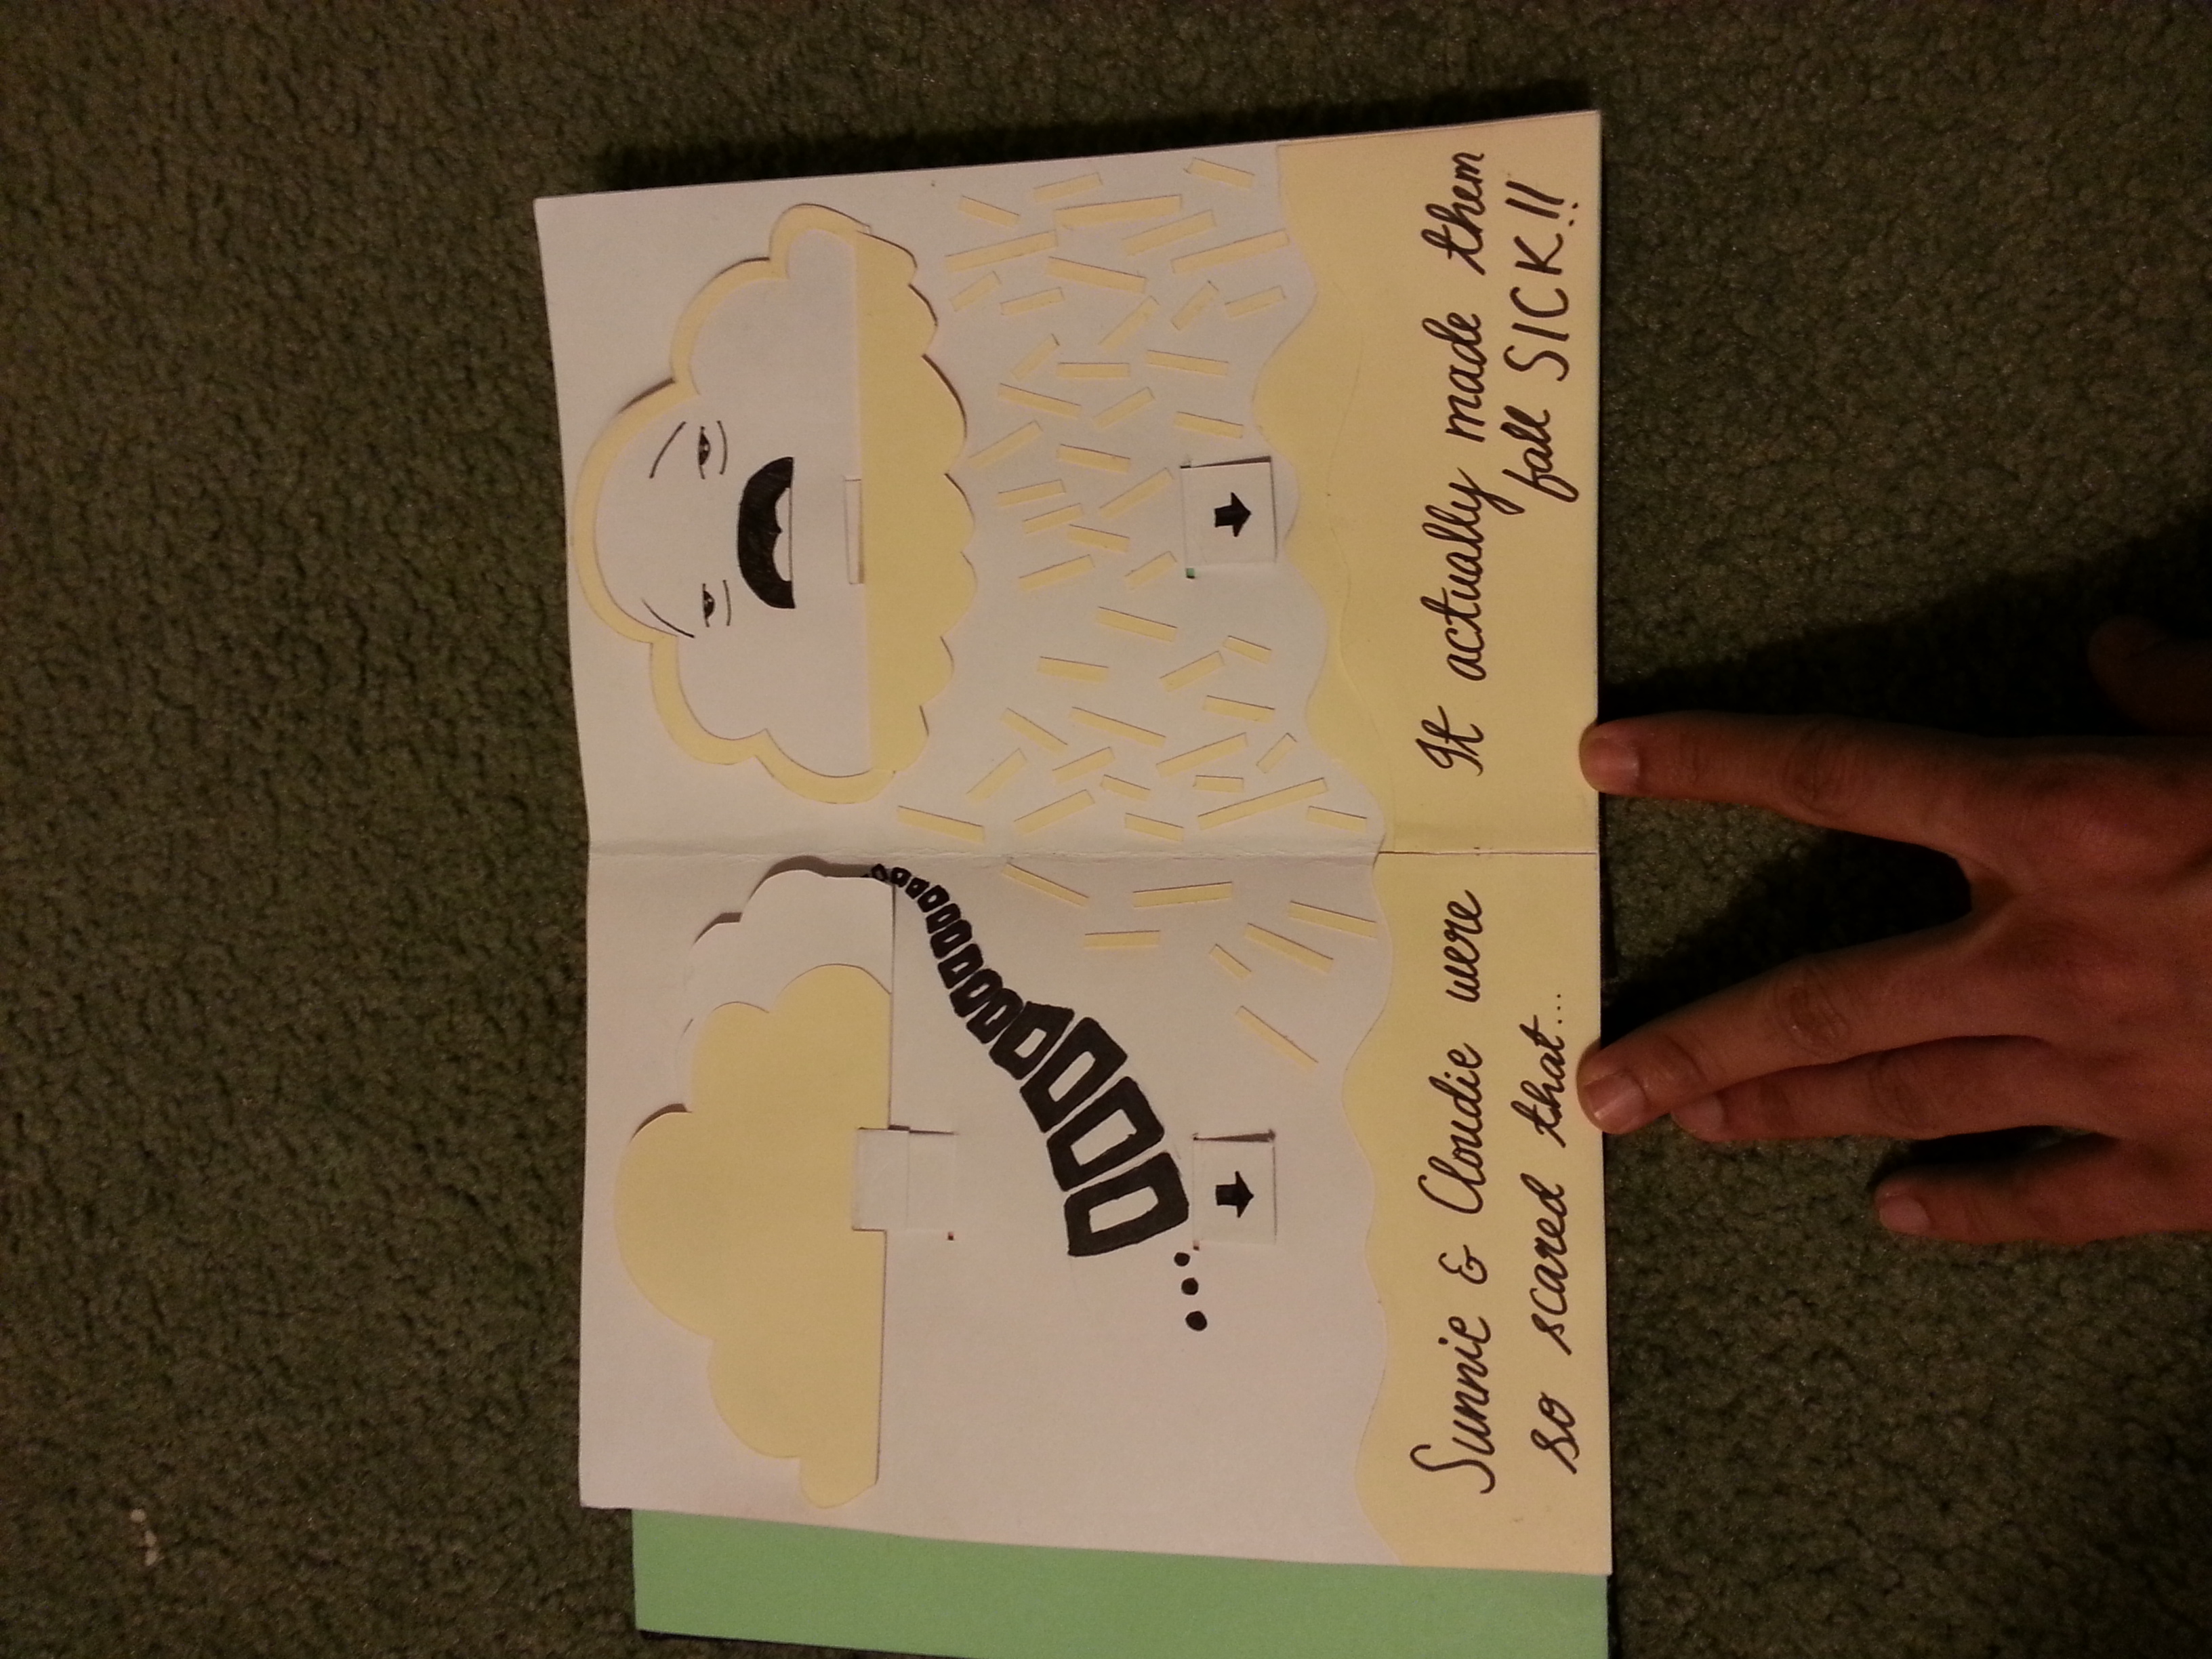 ...OOOOOOOOOOOOOO
Sunnie & Cloudie were
so scared that...
It actually made them
fall SICK!!